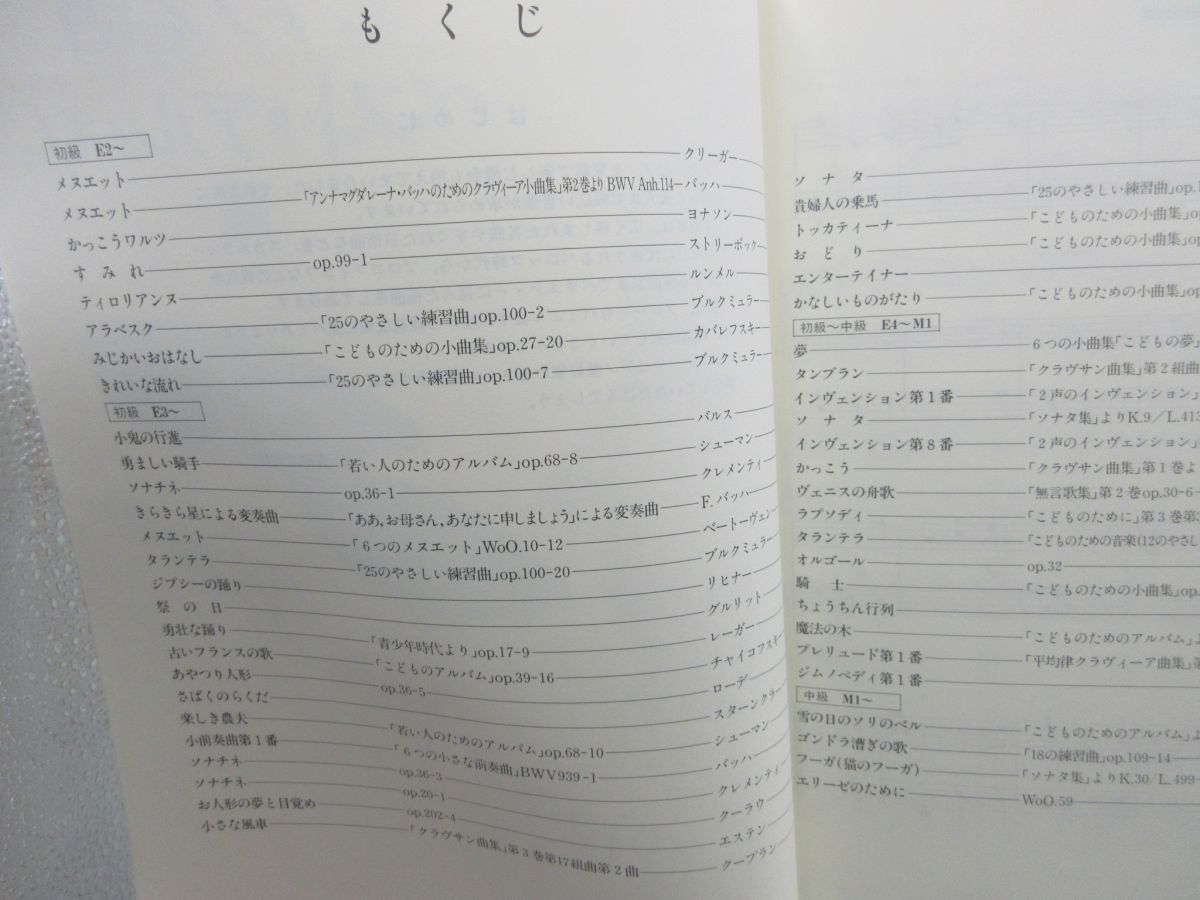 もくじ
初級 E2～
メヌエット クリーガー
メヌエット 「アンナマグダレーナ・バッハのためのクラヴィーア小曲集」第2巻より BWV Anh.114 バッハ
かっこうワルツ ヨナソン
すみれ op.99-1 ストリーボック
ティロリアンヌ ルンメル
アラベスク 「25のやさしい練習曲」op.100-2 ブルクミュラー
みじかいおはなし 「こどものための小曲集」op.27-20 カバレフスキー
きれいな流れ 「25のやさしい練習曲」op.100-7 ブルクミュラー
初級 E3～
小鬼の行進 バルス
勇ましい騎手 「若い人のためのアルバム」op.68-8 シューマン
ソナチネ op.36-1 クレメンティ
きらきら星による変奏曲 「ああ,お母さん,あなたに申しましょう」による変奏曲 F.バッハ
メヌエット 「6つのメヌエット」WoO.10-12 ベートーヴェン
タランテラ 「25のやさしい練習曲」op.100-20 ブルクミュラー
ジプシーの踊り リヒナー
祭の日 グルリット
勇壮な踊り 「青少年時代より」op.17-9 レーガー
古いフランスの歌 「こどものアルバム」op.39-16 チャイコフスキー
あやつり人形 op.36-5 ローデ
さばくのらくだ スターンクラー
楽しき農夫 「若い人のためのアルバム」op.68-10 シューマン
小前奏曲第1番 「6つの小さな前奏曲」BWV939-1 バッハ
ソナチネ op.36-3 クレメンティ
ソナチネ op.20-1 クーラウ
お人形の夢と目覚め op.202-4 エステン
小さな風車 「クラヴサン曲集」第3巻第17組曲第2曲 クープラン
ソナタ
貴婦人の乗馬 「25のやさしい練習曲」op.1
トッカティーナ 「こどものための小曲集」op
おどり 「こどものための小曲集」op
エンターテイナー
かなしいものがたり 「こどものための小曲集」op
初級～中級 E4～M1
夢 6つの小曲集「こどもの夢」
タンブラン 「クラヴサン曲集」第2組曲
インヴェンション第1番 「2声のインヴェンション」
ソナタ 「ソナタ集」よりK.9／L.413
インヴェンション第8番 「2声のインヴェンション」
かっこう 「クラヴサン曲集」第1巻よ
ヴェニスの舟歌 「無言歌集」第2巻op.30-6
ラプソディ 「こどものために」第3巻第
タランテラ 「こどものための音楽(12のやさし
オルゴール op.32
騎士 「こどものための小曲集」op.
ちょうちん行列
魔法の木 「こどものためのアルバム」よ
プレリュード第1番 「平均律クラヴィーア曲集」第
ジムノペディ第1番
中級 M1～
雪の日のソリのベル 「こどものためのアルバム」よ
ゴンドラ漕ぎの歌 「18の練習曲」op.109-14
フーガ(猫のフーガ) 「ソナタ集」よりK.30/L.499
エリーゼのために WoO.59